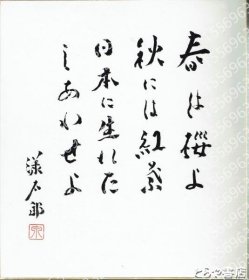 春は櫻よ
秋には紅葉
日本に生れた
しあわせよ
とらや書店